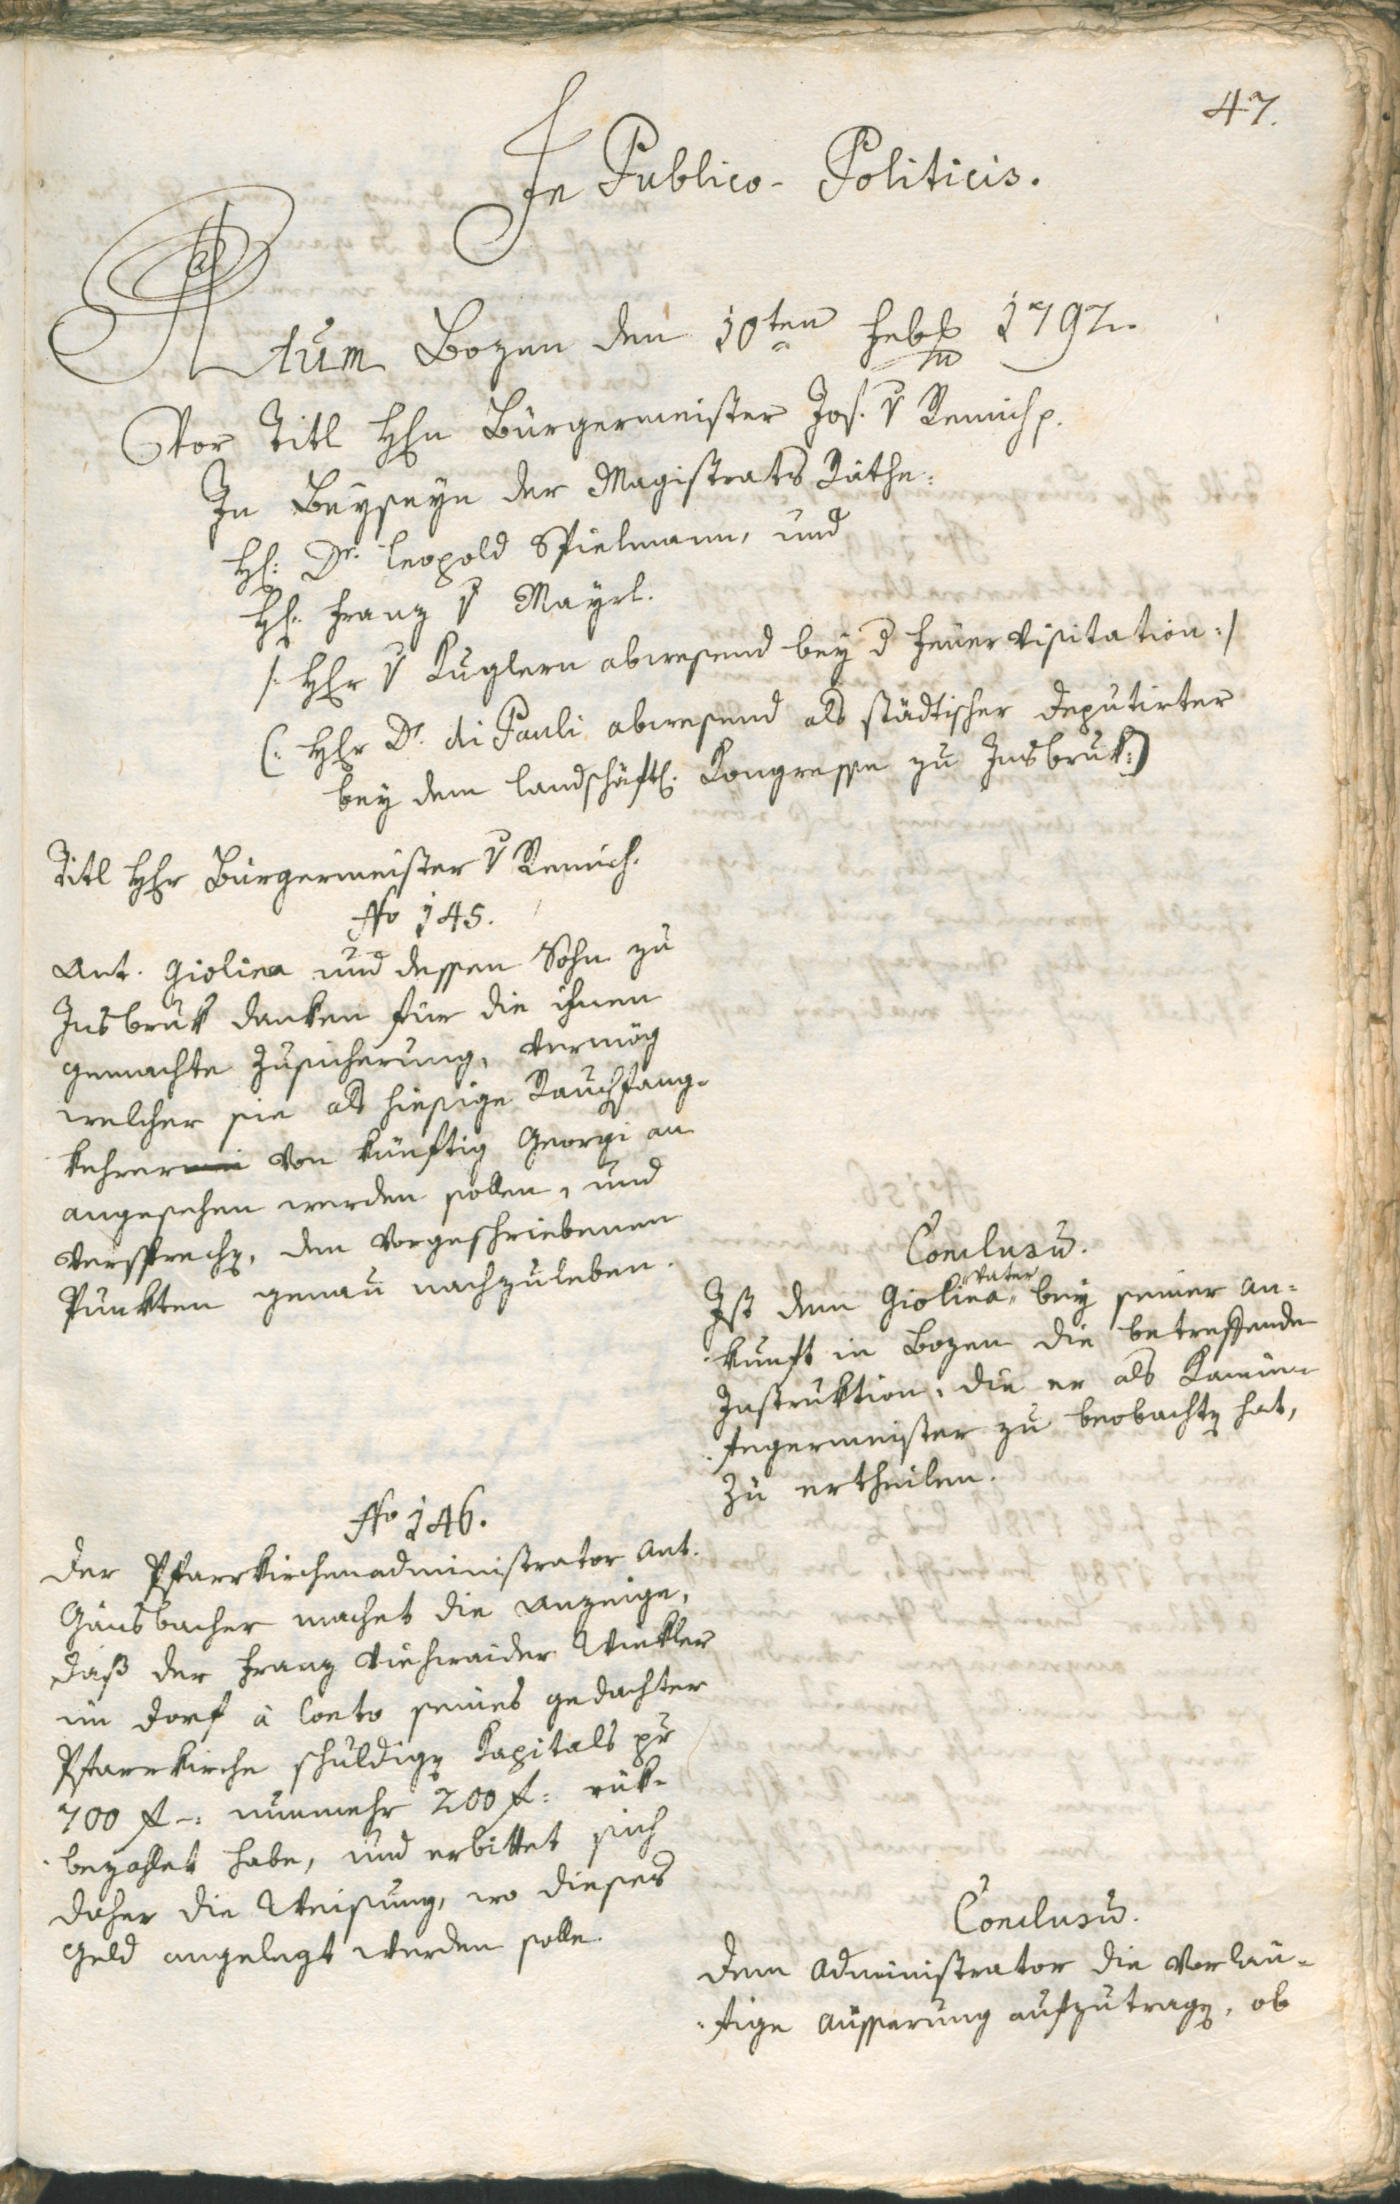 47.
In Publico-Politicis.
Actum Bozen den 10ten Febr 1797.
Vor Titl Hhn Bürgermeister Jos. v Remich p.
In Beyseyn der Magistrats Räthe:
H: Dr. Leopold Spielmann, und
H: Franz v Mayrl.
/: Hhr v Kuglern abwesend bey d Feuervisitation :/
(: Hhr Dr. di Pauli abwesend als städtischer Deputirter
bey dem landschäftl. Kongresse zu Insbruk :)
Titl Hhr Bürgermeister v Remich.
No 145.
Ant. Giolina und dessen Sohn zu
Insbruk danken für die ihnen
gemachte Zusicherung, vermög
welcher sie als hiesige Rauchfang-
kehrer von künftig Georgi an
angesehen werden sollen, und
versprechen, den vorgeschriebenen
Punkten genau nachzuleben.
Conclusum.
Ist dem Giolina Vater bey seiner An-
kunft in Bozen die betreffende
Instruktion, die er als Kamin-
fegermeister zu beobachten hat,
zu ertheilen.
No 146.
Der Pfarrkirchenadministrator Ant.
Gänsbacher machet die Anzeige,
daß der Franz Viehwaider Winkler
im Dorf à Conto seines gedachter
Pfarrkirche schuldigen Kapitals pr
700 f -: nunmehr 200 f: rük-
bezahlet habe, und erbittet sich
daher die Weisung, wo dieses
Geld angelegt werden solle.
Conclusum.
Dem Administrator die vorläu-
fige Äusserung aufzutragen, ob